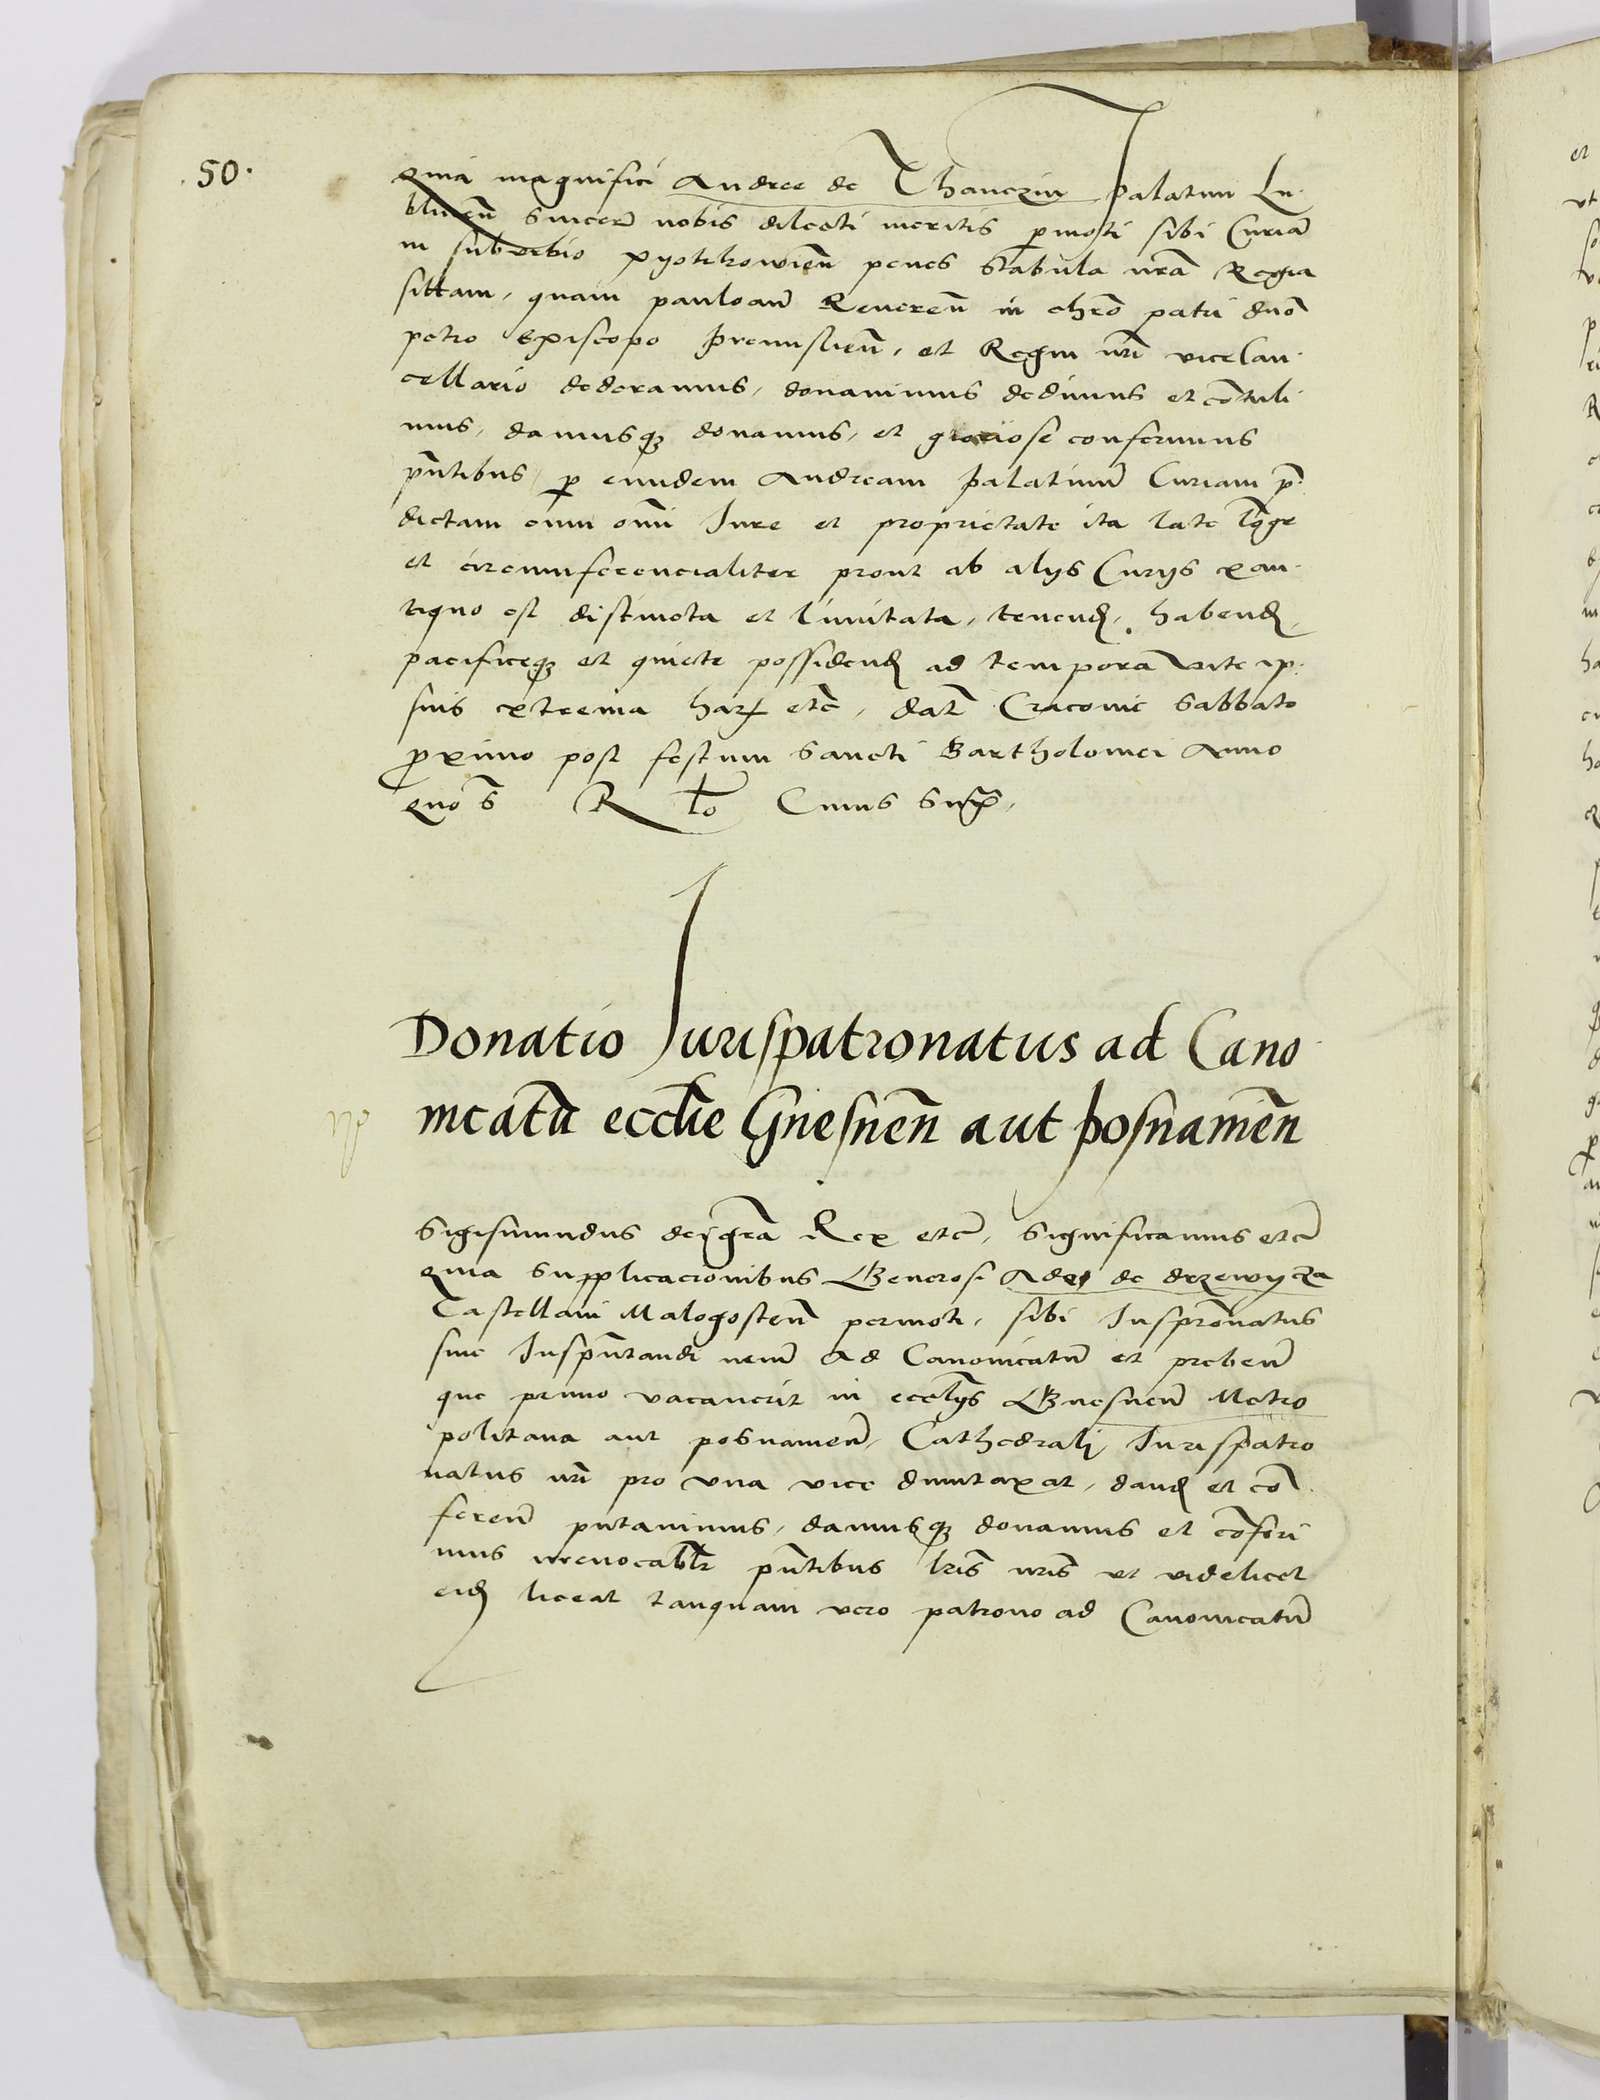 50.
Quia magnifici Andree de Thanczin palatini Lu
blinen̄ sincer̄ nobis dilecti meritis ꝑmoti sibi Curiā
in suburbio pyotrkowien̄ penes Stabula nr̄a Regia
sittam, quam pauloan̄ Reveren̄ in chrō patri dn̄o
petro Episcopo premislien̄, et Regni nr̄i vicecan
cellario dederamus, donavimus dedimus et cōtuli
mus, damusqꝫ donamus, et graciose conferimus
pn̄tibus, ꝑ eundem Andream palatinū Curiam p̄
dictam cum om̄i Iure et proprietate ita late lōge
et circumferencialiter prout ab alijs Curijs exan
tiquo est distincta et limitata, tenend, habend,
pacificeqꝫ et quiete possidend ad tempora vite ip
sius extrema har etc̄, dat̄ Cracovie Sabbato
proximo post festum Sancti Bartholomei Anno
quo s̄ R lo Cuius Sup̄,
Donatio Iurispatronatus ad Cano
nicatū eccl̄ie Gnesnen̄ aut posnanien̄
Sigismundus dei gr̄a Rex etc̄, Significamus etc̄
quia Supplicacionibus Generosi Ade de drzewycza
Castellani Malogosten̄ permoti, sibi Iusprōnatus
sive Iuspn̄tandi veru̅ Ad Canonicatū et preben̄
que primo vacaverit in eccl̄ijs Gnesnen̄ Metro
politana aut posnanien̄, Cathedrali Iurispatro
natus nr̄i pro una vice dumtaxat, dand et cō
feren̄ putavimus, damusqꝫ donamus et cōferi
mus irrevocabl̄r pn̄tibus lr̄is nr̄is ut videlicet
eid liceat tanquam vero patrono ad Canonicatū